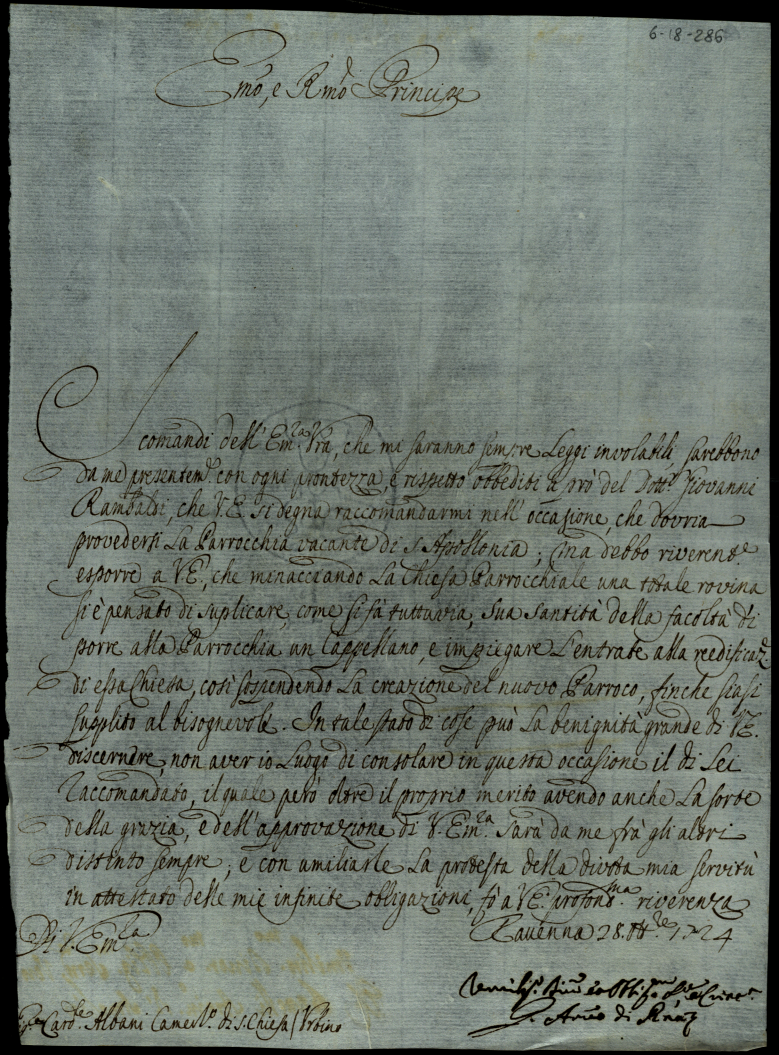 6-18-286
Emo, e Rmo Principe
I comandi dell' Em.ra Vra, che mi saranno sempre Leggi inviolabili, sarebbono
da me presentem.e con ogni prontezza, e rispetto obbediti a prò del Dott.r Giovanni
Rambaldi, che V.E. si degna raccomandarmi nell' occasione, che dovria
provedersi La Parrocchia vacante di S. Apollonia; ma debbo riverent.e
esporre a V.E., che minacciando La Chiesa Parrocchiale una totale rovina
si è pensato di suplicare, come si fà tuttavia, Sua Santità della facoltà di
porre alla Parrocchia un Cappellano, e impiegare L'entrate alla reedificaz.
di essa Chiesa, così sospendendo La creazione del nuovo Parroco, finche siasi
supplito al bisognevole. In tale stato di cose può La benignità grande di V.E.
discernere, non aver io Luogo di consolare in questa occasione il di Lei
raccomandato, il quale però oltre il proprio merito avendo anche La sorte
della grazia, e dell'approvazione di V. Em.ra sarà da me frà gli altri
distinto sempre; e con umiliarle La protesta della divota mia servitù
in attestato delle mie infinite obbligazioni, fò a V.E. profond.ma riverenza
Di V. Em.ra
Ravenna 28. 8b.re 1724
Card.le Albani Camerl.o di S. Chiesa / Urbino